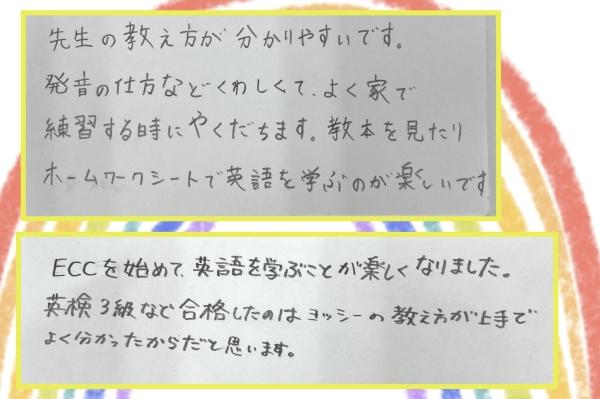 先生の教え方が分かりやすいです。
発音の仕方などくわしくて、よく家で
練習する時にやくだちます。教本を見たり
ホームワークシートで英語を学ぶのが楽しいです
ECCを始めて、英語を学ぶことが楽しくなりました。
英検3級など合格したのはヨッシーの教え方が上手で
よく分かったからだと思います。